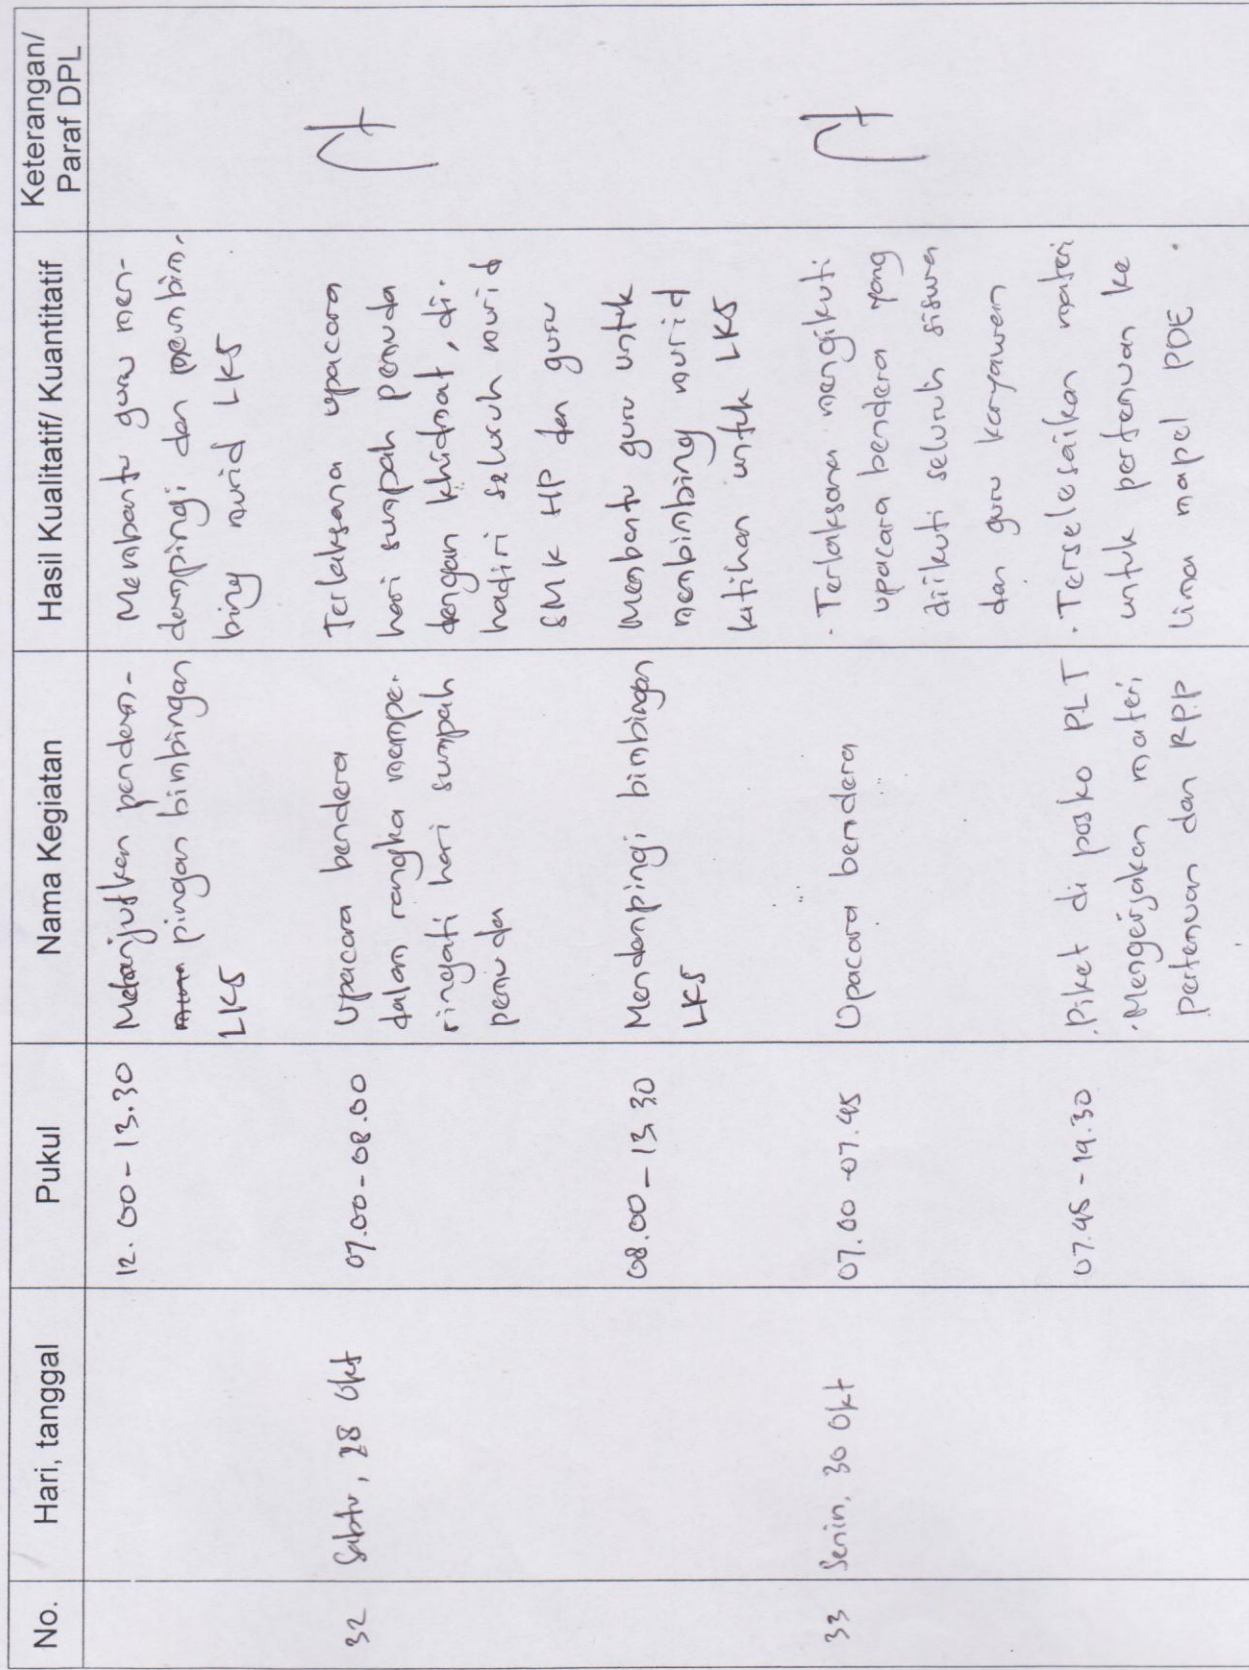 No. Hari, tanggal Pukul Nama Kegiatan Hasil Kualitatif/ Kuantitatif Keterangan/
Paraf DPL
12.00 - 13.30
Melanjutkan pendam-
pingan bimbingan
LKS
Membantu guru men-
dampingi dan membim-
bing murid LKS
32 Sabtu, 28 Okt 07.00 - 08.00
Upacara bendera
dalam rangka mempe-
ringati hari sumpah
pemuda
Terlaksana upacara
hari sumpah pemuda
dengan khidmat, di-
hadiri seluruh murid
SMK HP dan guru
08.00 - 13.30
Mendampingi bimbingan
LKS
Membantu guru untuk
membimbing murid
latihan untuk LKS
33 Senin, 30 Okt 07.00 - 07.45
Upacara bendera
· Terlaksana mengikuti
upacara bendera yang
diikuti seluruh siswa
dan guru karyawan
07.45 - 14.30
· Piket di posko PLT
· Mengerjakan materi,
pertemuan dan RPP
· Terselesaikan materi
untuk pertemuan ke
lima mapel PDE.